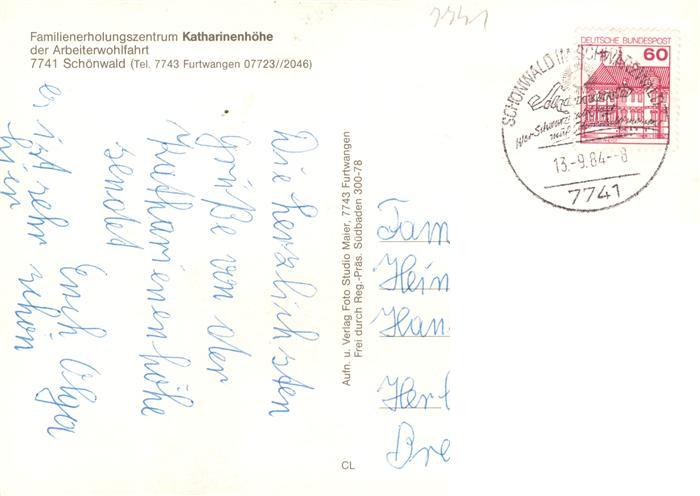 7741
Familienerholungszentrum Katharinenhöhe
der Arbeiterwohlfahrt
7741 Schönwald (Tel. 7743 Furtwangen 07723//2046)
Die herzlichsten
Grüße von der
Katharienenhöhe
sendet
Erich Olga
er ist sehr schön
hier
Aufn. u. Verlag Foto Studio Maier, 7743 Furtwangen
Frei durch Reg.-Präs. Südbaden 300-78
CL
DEUTSCHE BUNDESPOST
60
SCHÖNWALD IM SCHWARZWALD
13.-9.84.--8
7741
Fam
Hein
Han
Her
Bre